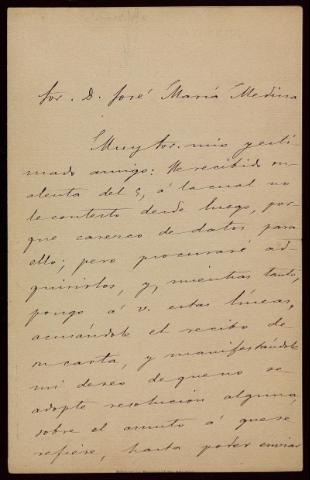 Sor. D. José María Medina
Muy Sor. mio y esti-
mado amigo: He recibido su
atenta del 5, á la cual no
le contesto desde luego, por-
que caresco de datos para
ello; pero procuraré ad-
quirirlos, y, mientras tanto,
pongo á V. estas líneas,
acusándole el recibo de
su carta, y manifestándole
mi deseo de que no se
adopte resolución alguna,
sobre el asunto á que se
refiere, hasta poder enviar